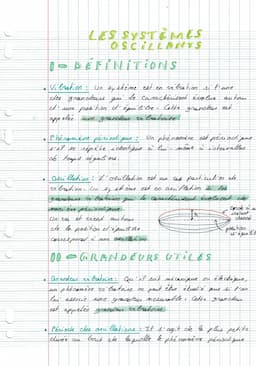 LES SYSTÈMES
OSCILLANTS
I - DÉFINITIONS
• Vibration : Un système est en vibration si l'une
des grandeurs qui le caractérisent évolue autour
d'une position d'équilibre. Cette grandeur est
appelée une grandeur vibratoire.
• Phénomène périodique : Un phénomène est périodique
s'il se répète identique à lui-même à intervalles
de temps réguliers.
• Oscillation : L'oscillation est un cas particulier de
vibration. Un système est en oscillation si les
grandeurs vibratoires qui le caractérisent évoluent de
manière périodique.
Un va et vient autour
de la position d'équilibre
correspond à une oscillation
position
d'équilibre
II - GRANDEURS UTILES
• Grandeur vibratoire : Qu'il soit mécanique ou électrique,
un phénomène vibratoire ne peut être étudié que si l'on
lui associe une grandeur mesurable. Cette grandeur
est appelée grandeur vibratoire
• Période des oscillations : Il s'agit de la plus petite
durée au bout de laquelle le phénomène périodique